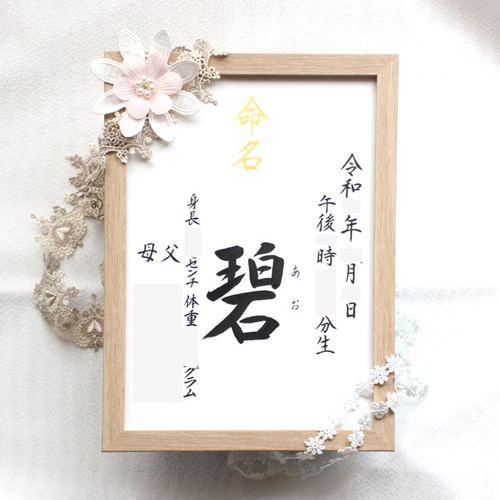 命名
令和 年 月 日
午後 時 分生
碧
あお
身長 センチ 体重 グラム
父
母